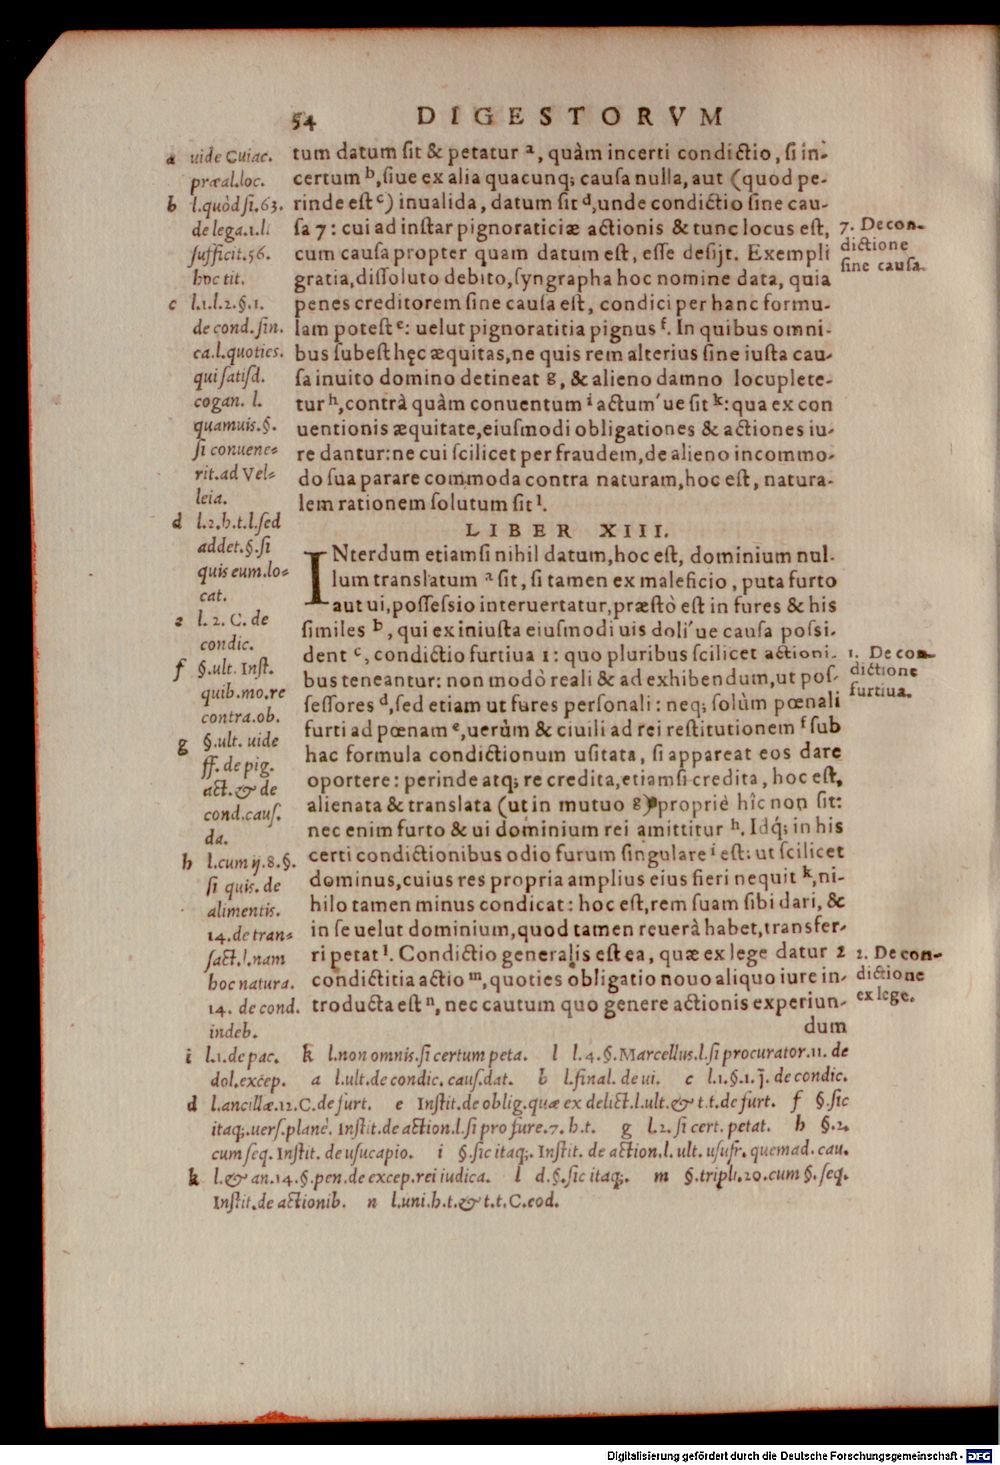 54 DIGESTORVM
tum datum ſit & petatur ᵃ, quàm incerti condictio, ſi in-
certum ᵇ, ſiue ex alia quacunq; cauſa nulla, aut (quod pe-
rinde eſt ᶜ) inualida, datum ſit ᵈ, unde condictio ſine cau-
ſa 7: cui ad inſtar pignoraticiæ actionis & tunc locus eſt,
cum cauſa propter quam datum eſt, eſſe deſijt. Exempli
gratia, diſſoluto debito, ſyngrapha hoc nomine data, quia
penes creditorem ſine cauſa eſt, condici per hanc formu-
lam poteſt ᵉ: uelut pignoratitia pignus ᶠ. In quibus omni-
bus ſubeſt hęc æquitas, ne quis rem alterius ſine iuſta cau-
ſa inuito domino detineat g, & alieno damno locuplete-
tur ʰ, contrà quàm conuentum ⁱ actum'ue ſit ᵏ: qua ex con
uentionis æquitate, eiuſmodi obligationes & actiones iu-
re dantur: ne cui ſcilicet per fraudem, de alieno incommo-
do ſua parare commoda contra naturam, hoc eſt, natura-
lem rationem ſolutum ſit ˡ.
LIBER XIII.
INterdum etiamſi nihil datum, hoc eſt, dominium nul-
lum translatum ᵃ ſit, ſi tamen ex maleficio, puta furto
aut ui, poſſeſsio interuertatur, præſtò eſt in fures & his
ſimiles ᵇ, qui ex iniuſta eiuſmodi uis doli'ue cauſa poſsi-
dent ᶜ, condictio furtiua 1: quo pluribus ſcilicet actioni-
bus teneantur: non modò reali & ad exhibendum, ut poſ-
ſeſſores ᵈ, ſed etiam ut fures perſonali: neq; ſolùm pœnali
furti ad pœnam ᵉ, uerùm & ciuili ad rei reſtitutionem ᶠ ſub
hac formula condictionum uſitata, ſi appareat eos dare
oportere: perinde atq; re credita, etiamſi credita, hoc eſt,
alienata & translata (ut in mutuo g) propriè hîc non ſit:
nec enim furto & ui dominium rei amittitur ʰ. Idq́; in his
certi condictionibus odio furum ſingulare ⁱ eſt: ut ſcilicet
dominus, cuius res propria amplius eius fieri nequit ᵏ, ni-
hilo tamen minus condicat: hoc eſt, rem ſuam ſibi dari, &
in ſe uelut dominium, quod tamen reuerà habet, transfer-
ri petat ˡ. Condictio generalis eſt ea, quæ ex lege datur 2
condictitia actio ᵐ, quoties obligatio nouo aliquo iure in-
troducta eſt ⁿ, nec cautum quo genere actionis experiun-
dum
a uide Cuiac.
præal. loc.
b l. quòd ſi. 63.
de lega. 1. li
ſufficit. 56.
hoc tit.
c l. 1. l. 2. §. 1.
de cond. ſin.
ca. l. quoties.
qui ſatiſd.
cogan. l.
quamuis. §.
ſi conuene-
rit. ad Vel-
leia.
d l. 2. h. t. l. ſed
addet. §. ſi
quis eum. lo-
cat.
e l. 2. C. de
condic.
f §. ult. Inſt.
quib. mo. re
contra. ob.
g §. ult. uide
ff. de pig.
act. & de
cond. cauſ.
da.
h l. cum ij. 8. §.
ſi quis. de
alimentis.
14. de tran-
ſact. l. nam
hoc natura.
14. de cond.
indeb.
7. De con-
dictione
ſine cauſa.
1. De con-
dictione
furtiua.
2. De con-
dictione
ex lege.
i l. 1. de pac. k l. non omnis. ſi certum peta. l l. 4. §. Marcellus. l. ſi procurator. 11. de
dol. excep. a l. ult. de condic. cauſ. dat. b l. final. de ui. c l. 1. §. 1. j. de condic.
d l. ancillæ. 12. C. de furt. e Inſtit. de oblig. quæ ex delict. l. ult. & t. t. de furt. f §. ſic
itaq;. uerſ. planè. Inſtit. de action. l. ſi pro fure. 7. h. t. g l. 2. ſi cert. petat. h §. 2.
cum ſeq. Inſtit. de uſucapio. i §. ſic itaq;. Inſtit. de action. l. ult. uſufr. quemad. cau.
k l. & an. 14. §. pen. de excep. rei iudica. l d. §. ſic itaq;. m §. tripli. 20. cum §. ſeq.
Inſtit. de actionib. n l. uni. h. t. & t. t. C. eod.
Digitalisierung gefördert durch die Deutsche Forschungsgemeinschaft - DFG